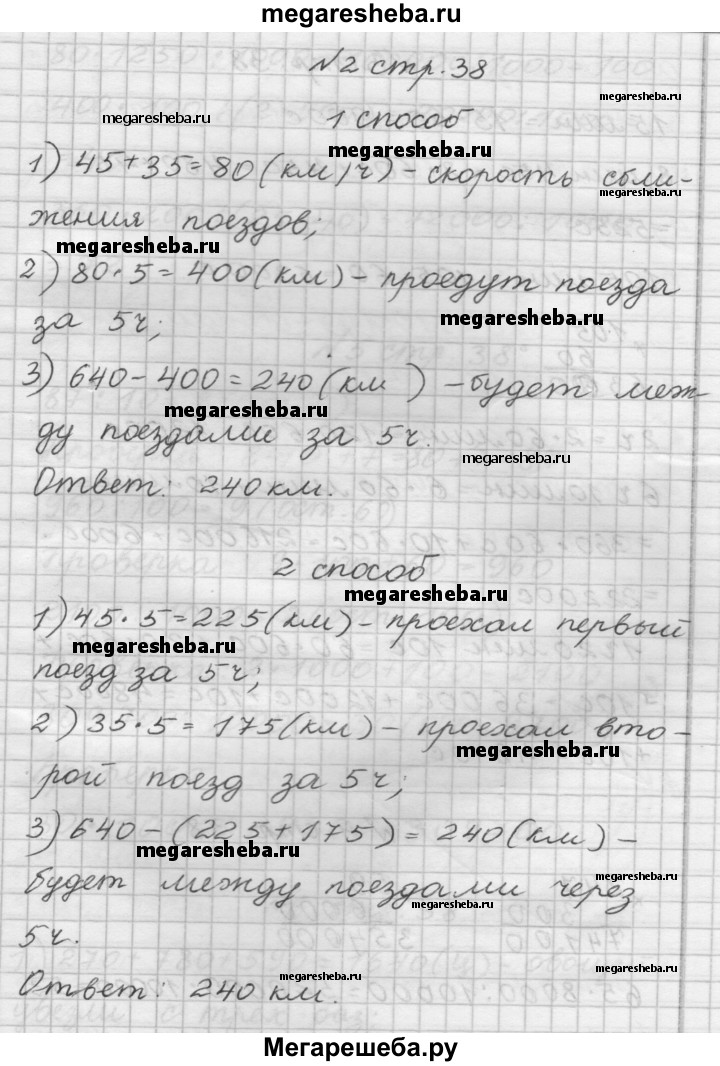 megaresheba.ru
№2 стр. 38
megaresheba.ru
megaresheba.ru
1 способ
megaresheba.ru
1) 45+35=80 (км/ч) - скорость сбли-
megaresheba.ru
жения поездов;
megaresheba.ru
2) 80·5=400(км) - проедут поезда
за 5ч;
megaresheba.ru
3) 640-400=240(км) - будет меж-
megaresheba.ru
ду поездами за 5ч.
megaresheba.ru
Ответ: 240км.
2 способ
megaresheba.ru
1) 45·5=225(км) - проехал первый
megaresheba.ru
поезд за 5ч;
2) 35·5=175(км) - проехал вто-
megaresheba.ru
рой поезд за 5ч;
3) 640-(225+175)=240(км) -
megaresheba.ru
будет между поездами через
megaresheba.ru
megaresheba.ru
5ч.
megaresheba.ru
megaresheba.ru
Ответ: 240 км.
megaresheba.ru
Мегарешеба.ру